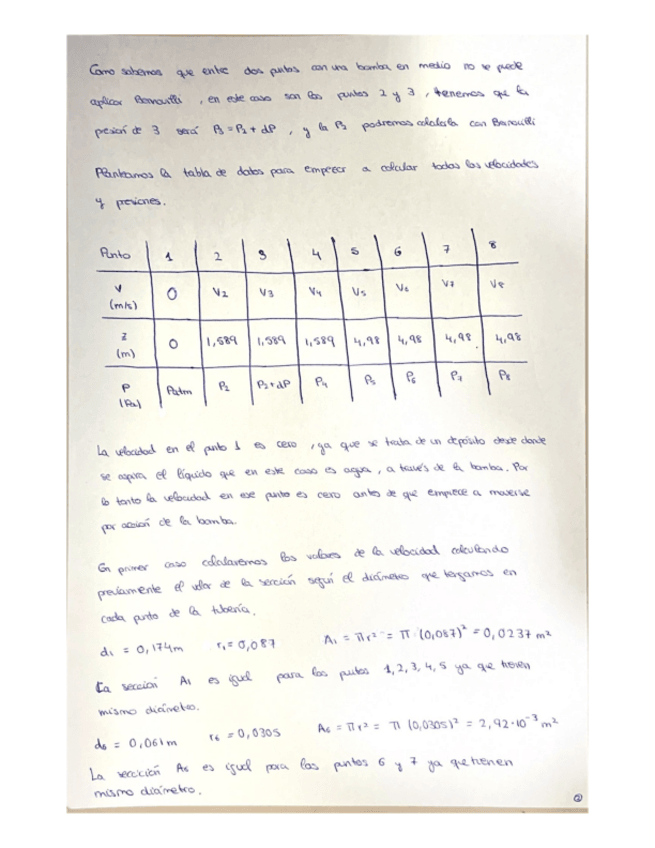 Como sabemos que entre dos puntos con una bomba en medio no se puede
aplicar Bernouilli, en este caso son los puntos 2 y 3, tenemos que la
presión de 3 será P3 = P2 + dP, y la P2 podremos calcularla con Bernouilli
Planteamos la tabla de datos para empezar a calcular todas las velocidades
y presiones.
Punto 1 2 3 4 5 6 7 8
V (m/s) 0 V2 V3 V4 V5 V6 V7 V8
z (m) 0 1,589 1,589 1,589 4,98 4,98 4,98 4,98
P (Pa) Patm P2 P2+dP P4 P5 P6 P7 P8
La velocidad en el punto 1 es cero, ya que se trata de un depósito desde donde
se aspira el líquido que en este caso es agua, a través de la bomba. Por
lo tanto la velocidad en ese punto es cero antes de que empiece a moverse
por acción de la bomba.
En primer caso calcularemos los valores de la velocidad calculando
previamente el valor de la sección según el diámetro que tengamos en
cada punto de la tubería.
d1 = 0,174m r1 = 0,087 A1 = πr² = π·(0,087)² = 0,0237 m²
La sección A1 es igual para los puntos 1,2,3,4,5 ya que tienen
mismo diámetro.
d6 = 0,061m r6 = 0,0305 A6 = πr² = π (0,0305)² = 2,92·10⁻³ m²
La sección A6 es igual para los puntos 6 y 7 ya que tienen
mismo diámetro.
②